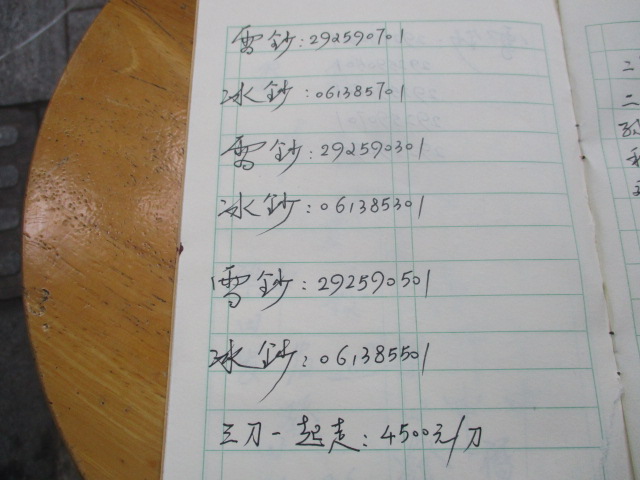 雪鈔:292590701
冰鈔:061385701
雪鈔:292590301
冰鈔:061385301
雪鈔:292590501
冰鈔:061385501
三刀一起走:4500元/刀
二
二